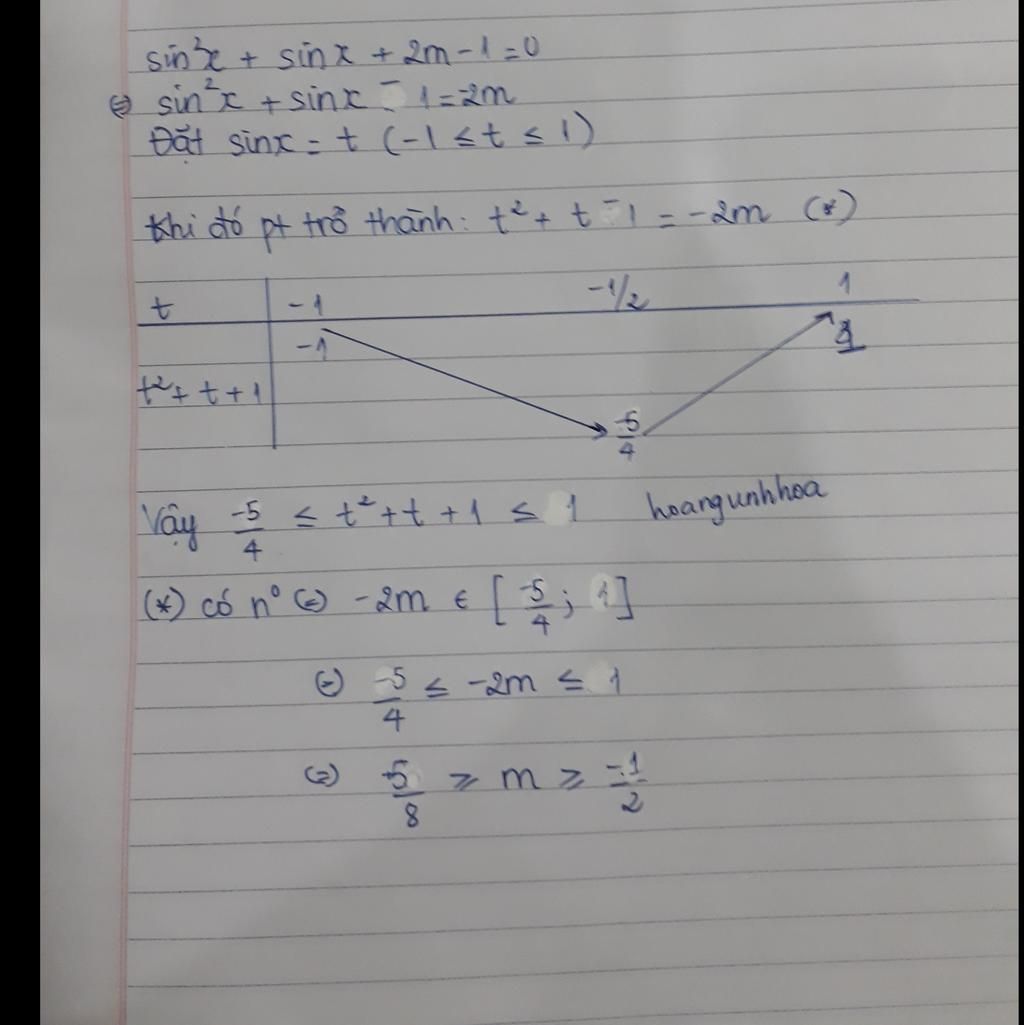 sin²x + sinx + 2m - 1 = 0
⇔ sin²x + sinx - 1 = -2m
Đặt sinx = t (-1 ≤ t ≤ 1)
Khi đó pt trở thành: t² + t - 1 = -2m (*)
t -1 -1/2 1
-1 1
t² + t + 1
-5/4
Vậy -5/4 ≤ t² + t + 1 ≤ 1 hoangunhhoa
(*) có n° (=) -2m ∈ [-5/4; 1]
(=) -5/4 ≤ -2m ≤ 1
(=) 5/8 ≥ m ≥ -1/2